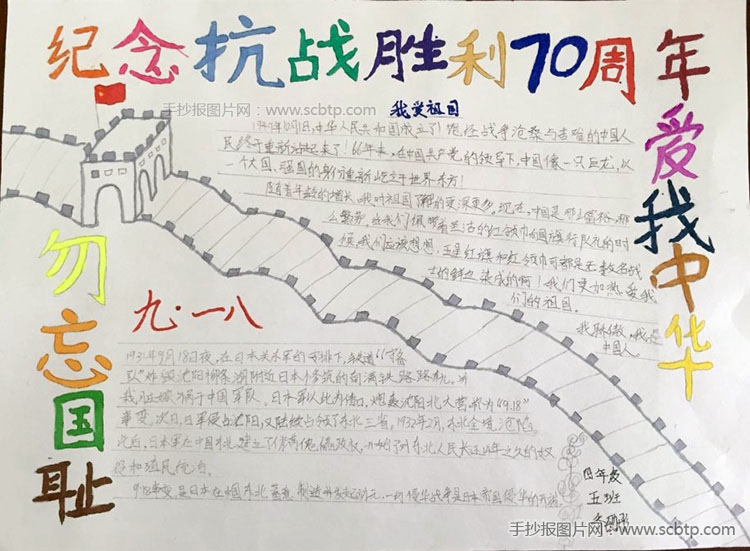 纪念抗战胜利70周年
爱我中华
勿忘国耻
手抄报图片网：www.scbtp.com
我爱祖国
1949年10月1日,中华人民共和国成立了!饱经战争沧桑与苦难的中国人
民终于重新站起来了!66年来,在中国共产党的领导下,中国像一只巨龙,以
一个大国、强国的身份重新屹立于世界东方!
随着年龄的增长,我对祖国了解的更深更多,现在,中国是那么富裕,那
么繁荣,当我们佩带着
红领巾向国旗行队礼的时
候,我们应该想想,五星红旗和红领巾可都是无数名战
士的鲜血染成的啊!我们更加热爱我
们的祖国。
我骄傲,我是
中国人。
九·一八
1931年9月18日夜,在日本关东军的安排下,铁道“守备
队”炸毁沈阳柳条湖附近日本修筑的南满铁路路轨,并
嫁祸于中国军队。日本军以此为借口,炮轰沈阳北大营,称为“9.18”
事变。次日,日军侵占沈阳,又陆续占领了东北三省,1932年2月,东北全境沦陷。
此后,日本军在中国东北建立了伪满傀儡政权,开始了对东北人民长达14年之久的奴
役和殖民统治。
9.18事变是日本在中国东北蓄意制造并发动的
一场侵华战争,是日本帝国侵华的开端。
四年级
五班
手抄报图片网：www.scbtp.com